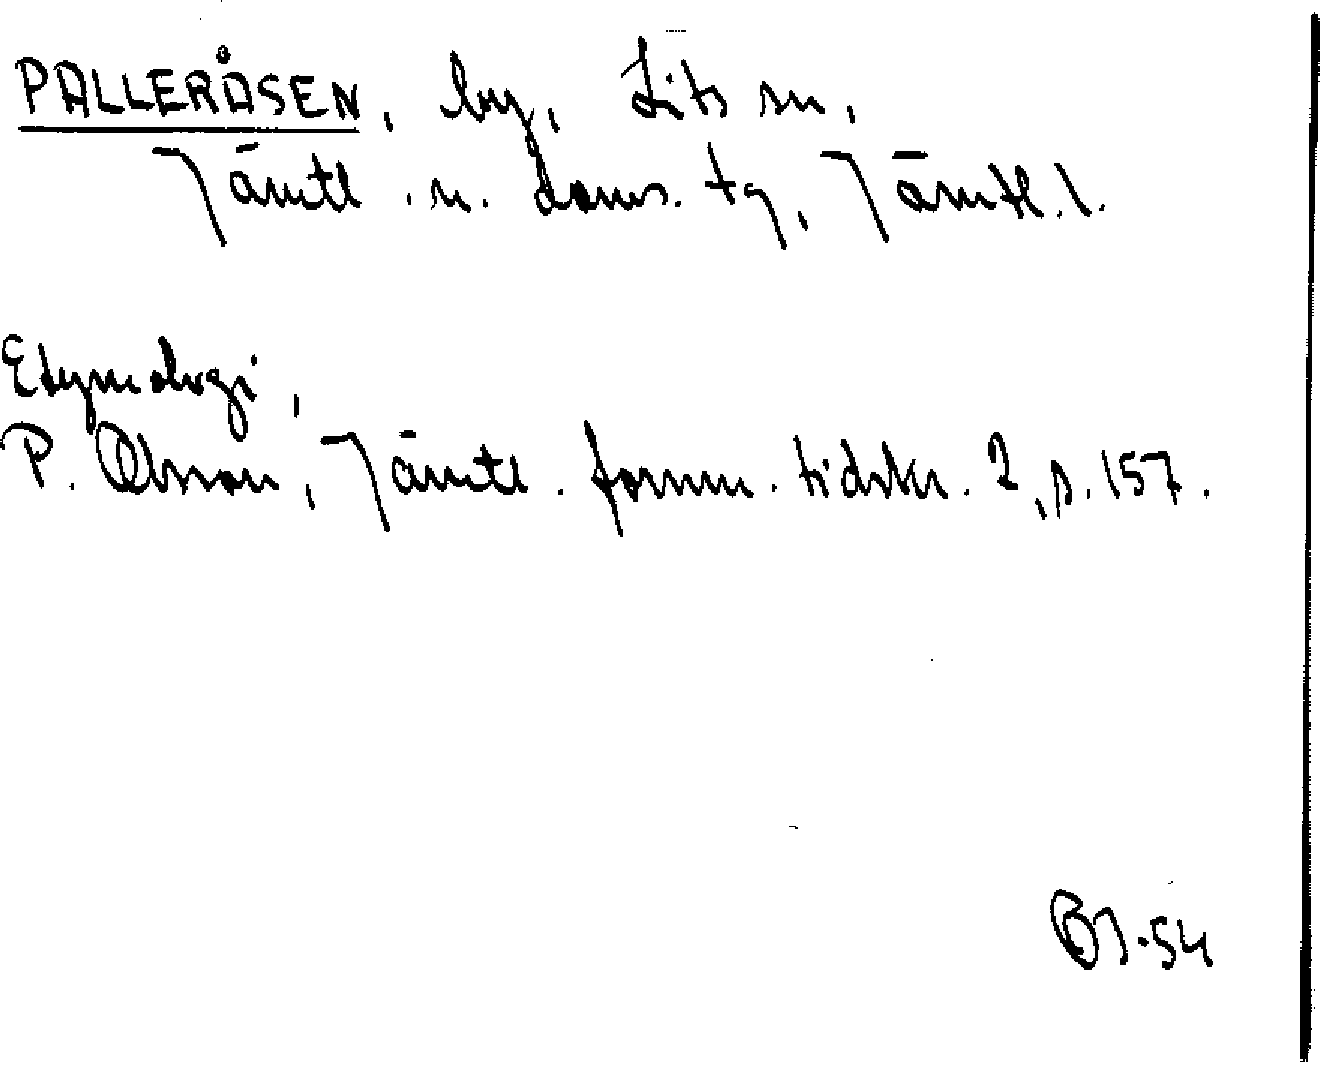 PALLERÅSEN, by, Lits sn,
Jämtl. n. doms. tg, Jämtl. l.
Etymologi,
P. Olsson, Jämtl. fornm. tidskr. 2, s. 157.
BJ.54